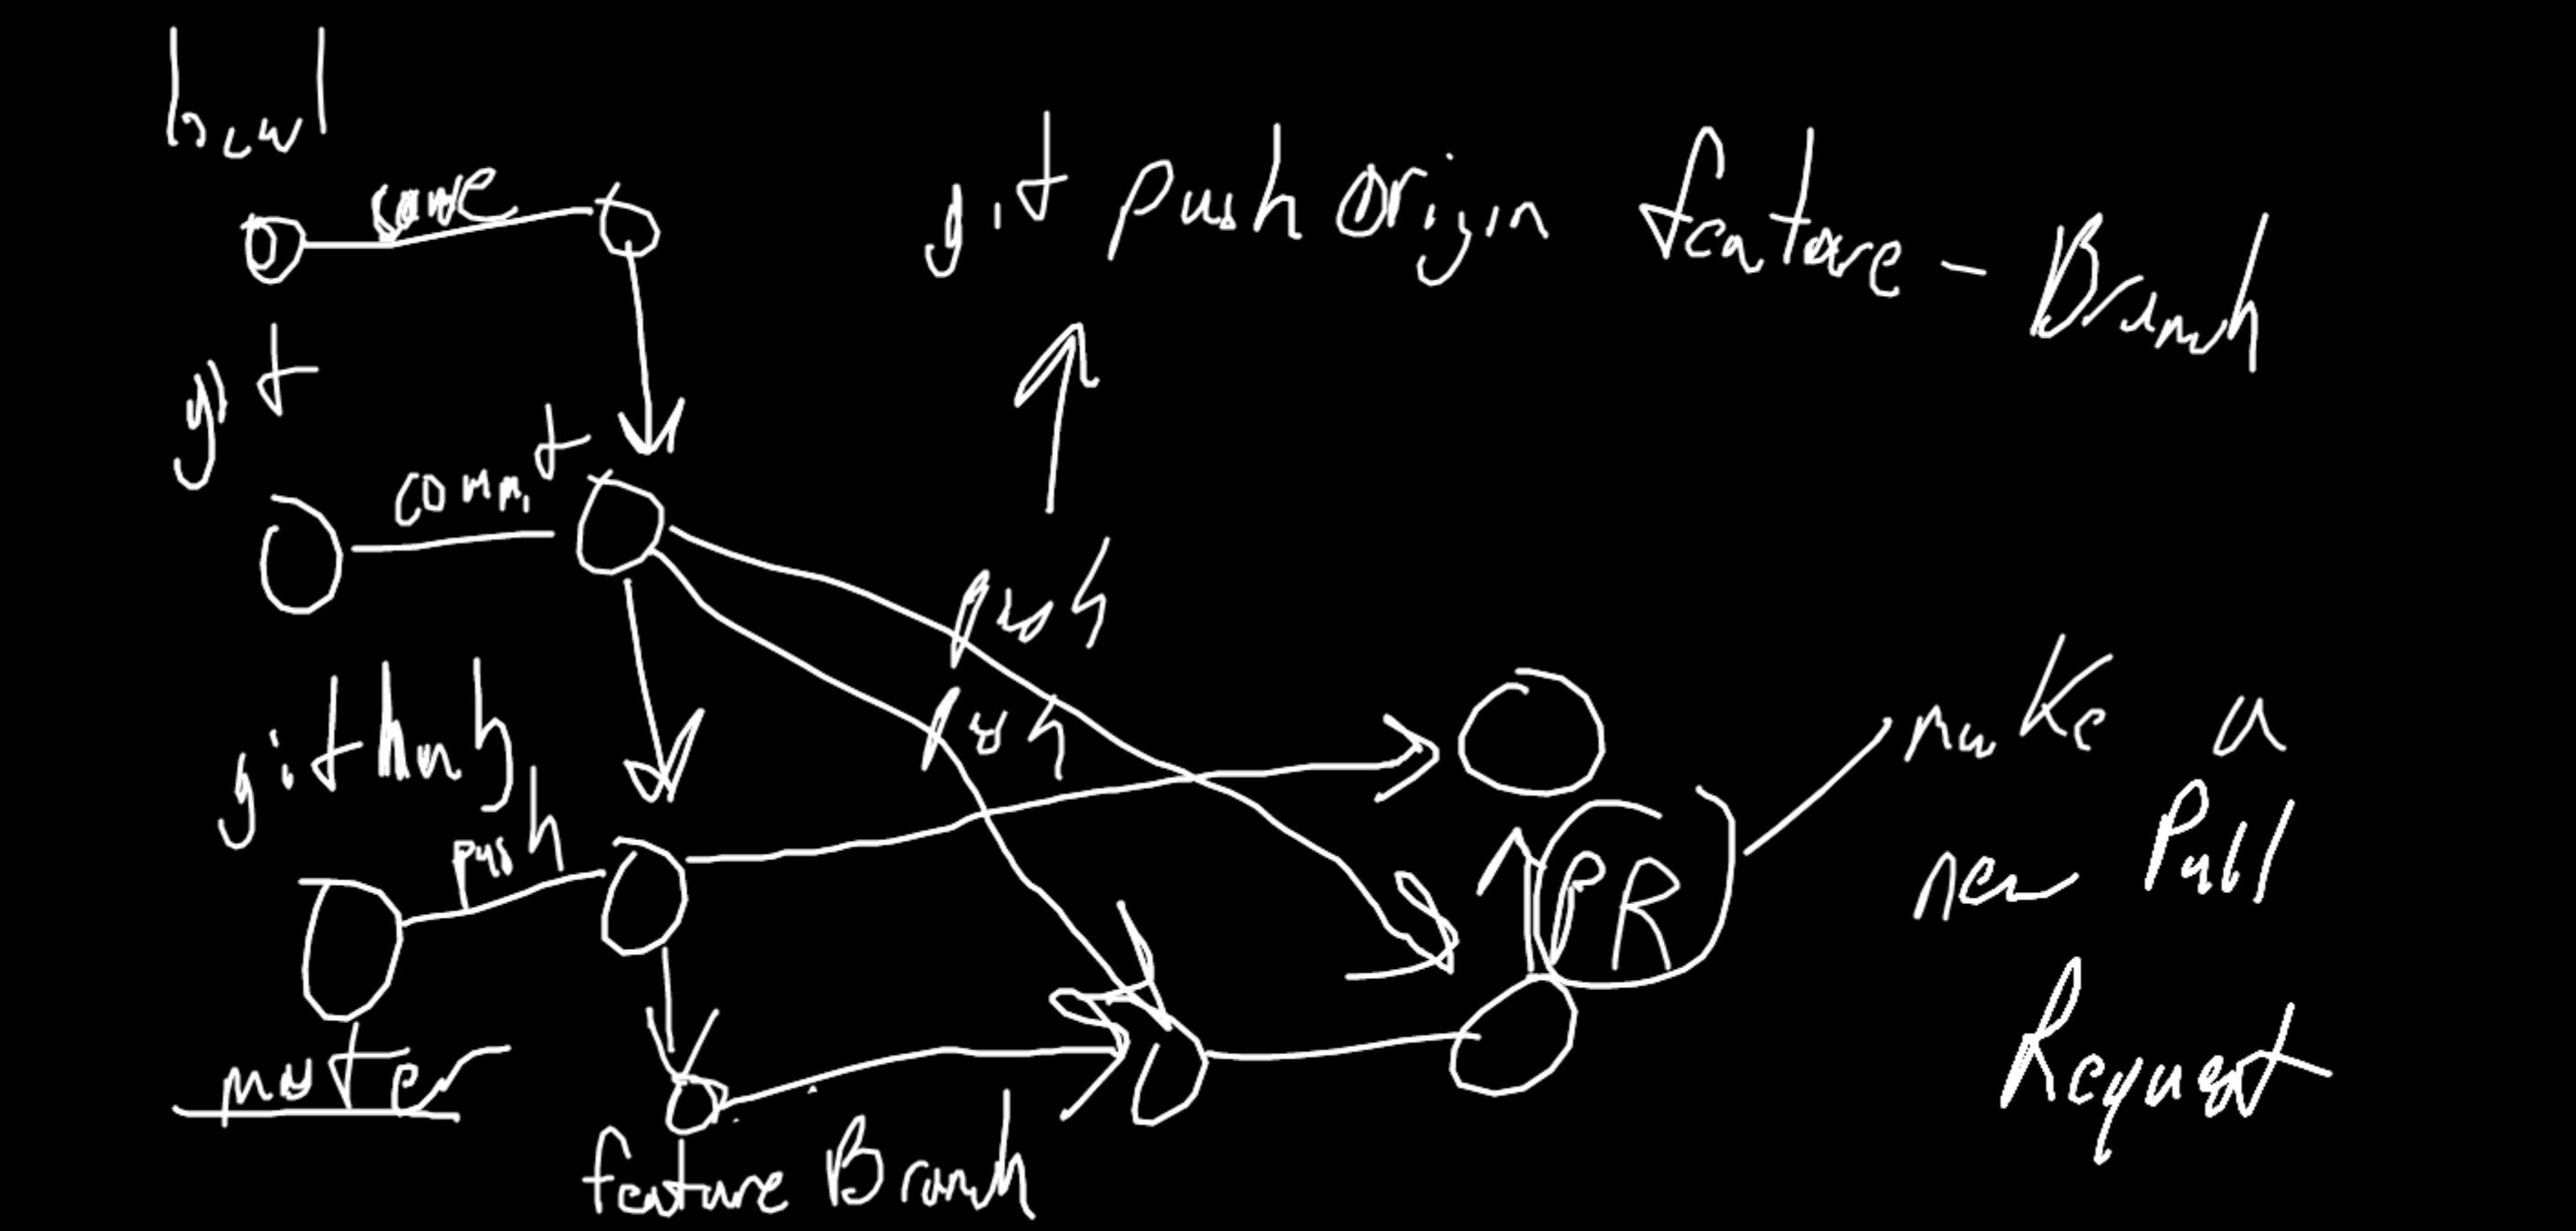 save
git push origin feature - Branch
git
commit
push
push
github
push
make a
new Pull
Request
PR
master
feature Branch